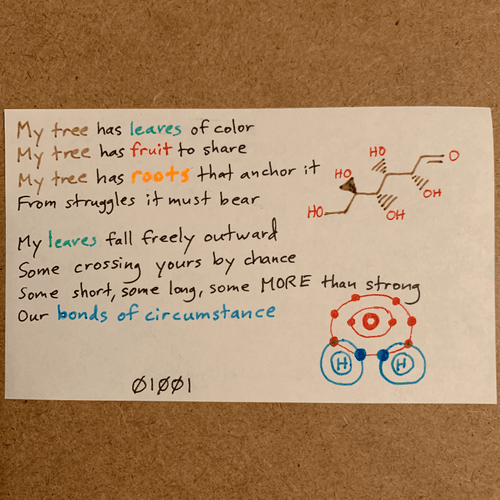 My tree has leaves of color
My tree has fruit to share
My tree has roots that anchor it
From struggles it must bear
HO
O
HO
OH
HO
OH
My leaves fall freely outward
Some crossing yours by chance
Some short, some long, some MORE than strong
Our bonds of circumstance
O
H H
01001